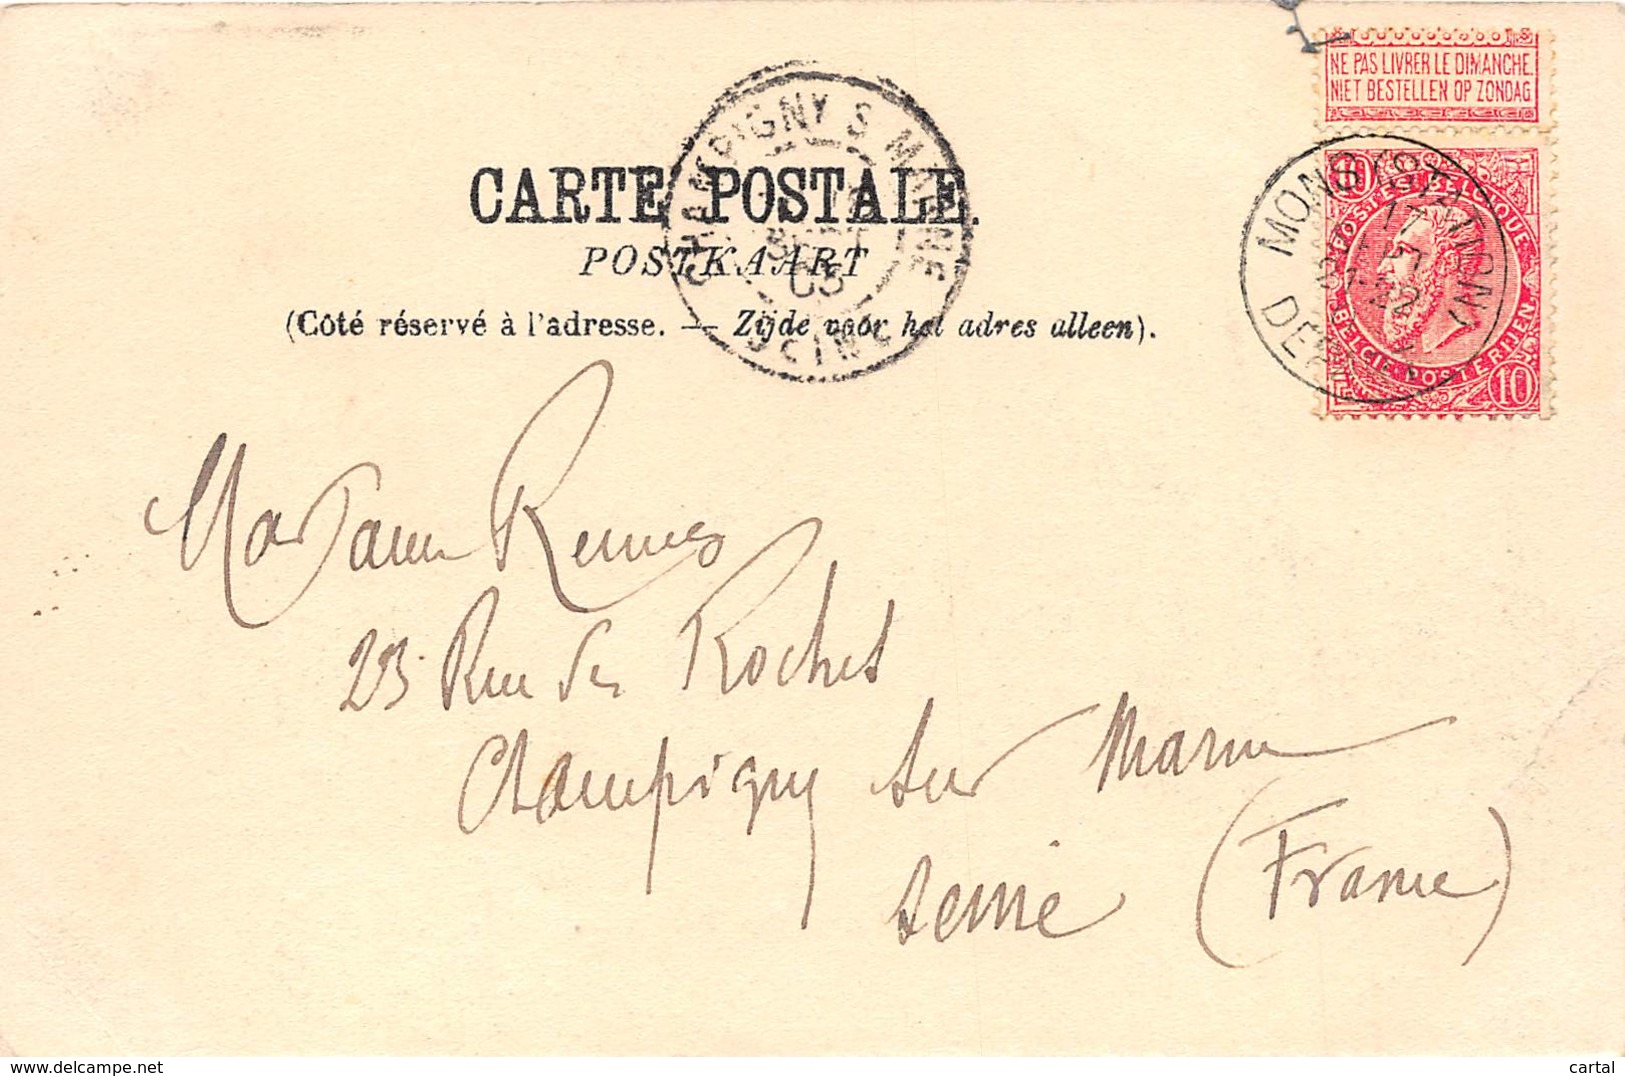 NE PAS LIVRER LE DIMANCHE.
NIET BESTELLEN OP ZONDAG
CHAMPIGNY S. MARNE
SEINE
MONS (STATION)
10
POSTES BELGIQUE
BELGIE POSTERIJEN
10
CARTE POSTALE.
POSTKAART
(Côté réservé à l'adresse. — Zijde voor het adres alleen).
Madame
23 Rue des Rochet
Champigny sur Marne
Seine (France)
www.delcampe.net
cartal